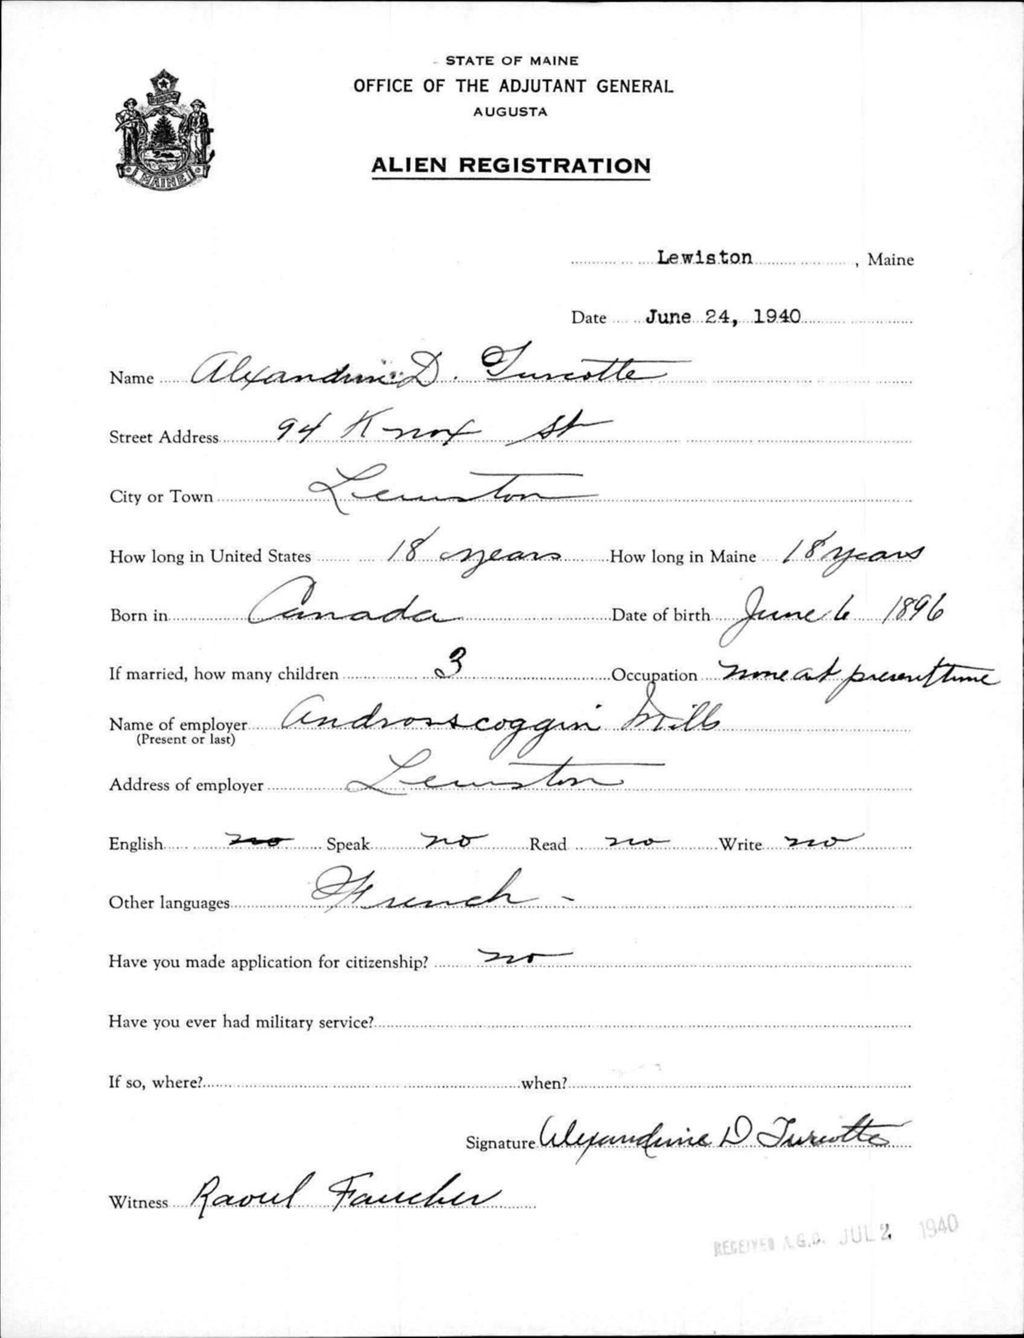 STATE OF MAINE
OFFICE OF THE ADJUTANT GENERAL
AUGUSTA
ALIEN REGISTRATION
MAINE
Lewiston, Maine
Date June 24, 1940
Name Alexandrine D. Turcotte
Street Address 94 Knox St
City or Town Lewiston
How long in United States 18 years How long in Maine 18 years
Born in Canada Date of birth June 6 1896
If married, how many children 3 Occupation none at present time
Name of employer Androsscoggin Mills
(Present or last)
Address of employer Lewiston
English no Speak no Read no Write no
Other languages French -
Have you made application for citizenship? no
Have you ever had military service?
If so, where? when?
Signature Alexandrine D Turcotte
Witness Raoul Faucher
RECEIVED A.G.O. JUL 2 1940